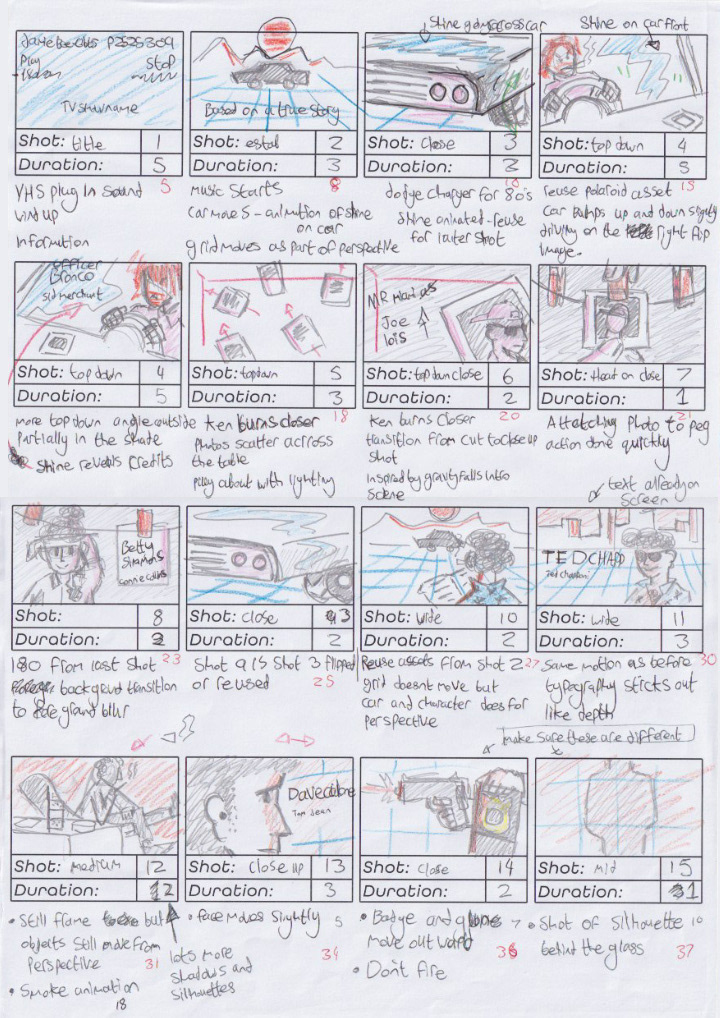 Play
Stop
TV show name
Shot: title 1
Duration: 5
VHS plug in sound 5
wind up
information
Based on a true story
Shot: estab 2
Duration: 3
Music starts 8
car moves - animation of shine
on car
grid moves as part of perspective
Shine goes across car
Shot: close 3
Duration: 3
dodge charger for 80s
Shine animated - reuse
for later shot
Shine on car front
Shot: top down 4
Duration: 5
reuse polaroid asset 15
Car bumps up and down slightly
driving on the right flip
image.
officer
Bronco
Sid merchant
Shot: top down 4
Duration: 5
more top down angle outside
partially in the shade
Shine reveals credits
Shot: topdown 5
Duration: 3
Ken burns closer 18
Photos scatter across
the table
play about with lighting
Joe
lois
Shot: top down close 6
Duration: 2
Ken burns closer 20
transition from cut to close up
shot
inspired by gravity falls intro
scene
Shot: Head on close 7
Duration: 1
Attatching photo to peg 21
action done quickly
Betty
Connie
Shot: 8
Duration: 2
180 from last shot 23
background transition
to fore grand blur
Shot: close 3
Duration: 2
Shot 9 is Shot 3 flipped
or reused 25
Shot: wide 10
Duration: 2
Reuse assets from shot 2 27
grid doesnt move but
car and character does for
perspective
text already on
screen
TED CHARD
Shot: wide 11
Duration: 3
Same motion as before 30
typography sticks out
like depth
make sure these are different
Shot: medium 12
Duration: 12
• Still frame but
objects still move from
perspective
31
• Smoke animation
18
lots more
shadows and
silhouettes
Shot: close up 13
Duration: 3
• face moves slightly 5
34
Shot: close 14
Duration: 2
• Badge and 7
move out ward 36
• Don't fire
Shot: mid 15
Duration: 1
• Shot of silhouette 10
behind the glass
37